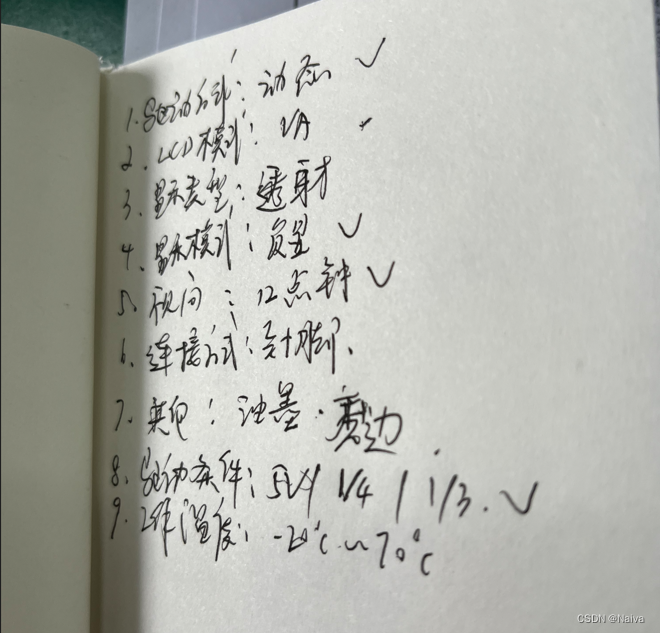 1.驱动方式:动态 ✓
2.LCD模式:VA
3.显示类型:透射
4.显示模式:负显 ✓
5.视向:12点钟 ✓
6.连接方式:针脚.
7.类色:油墨.磨边
8.驱动条件:5V/ 1/4 / 1/3. ✓
9.工作温度:-20℃~70℃
CSDN @Naiva